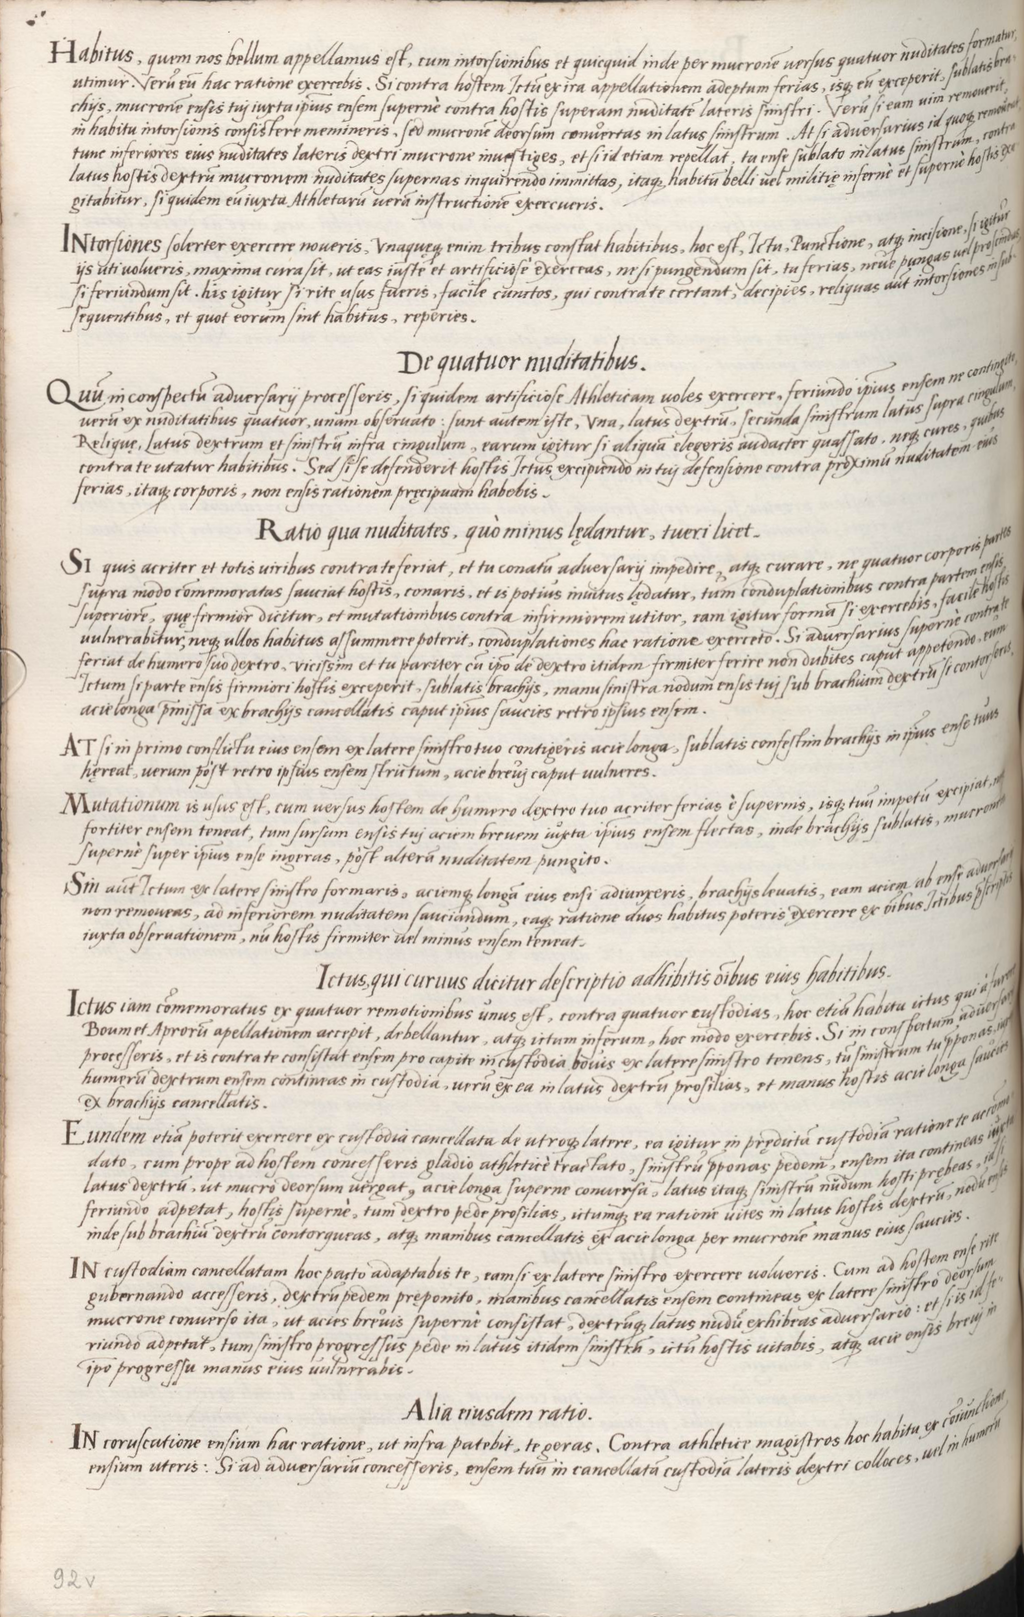 Habitus, quem nos bellum appellamus est, cum intorsionibus et quicquid inde per mucronē versus quatuor nūditates formatur,
utimur. Verū eū hac ratione exercebis. Si contra hostem Ictū ex ira appellationem adeptum ferias, isq; eū exceperit, sublatis bra-
chijs, mucronē ensis tuj iuxta ipius ensem supernè contra hostis superam nuditatē lateris sinistri. Verū si eam uim remouerit,
in habitu intorsionis consistere memineris, sed mucronē deorsum conuertas in latus sinistrum. At si aduersarius id quoq; remouerit,
tunc inferiores eius nuditates lateris dextri mucrone inuestiges, et si id etiam repellat, tu ense sublato in latus sinistrum, contra
latus hostis dextrū mucronem nuditates supernas inquirendo immittas, itaq; habitū belli uel militię infernè et supernè hostis exa-
gitabitur, si quidem eū iuxta Athletarū ueram instructionē exercueris.
INtorsiones solerter exercere noueris, Vnaquęq; enim tribus constat habitibus, hoc est, Ictu, Punctione, atq; incisione, si igitur
ijs uti uolueris, maxima cura sit, ut eas iustè et artificiosè exerceas, ne si pungendum sit, tu ferias, neue pungas uel proscindas
si feriundum sit. his igitur si rite usus fueris, facile cunctos, qui contra te certant, decipies, reliquas aūt intorsiones in sub-
sequentibus, et quot eorum sint habitus, reperies.
De quatuor nuditatibus.
Quū in conspectū aduersarij processeris, si quidem artificiose Athleticam uoles exercere, feriundo ipius ensem ne contingito,
uerū ex nuditatibus quatuor, unam obseruato: sunt autem istę, Vna, latus dextrū, secunda sinistrum latus supra cingulum,
Reliquę, latus dextrum et sinistrū infra cingulum, earum igitur si aliquā elegeris audacter quassato, neq; cures, quibus
contra te utatur habitibus. Sed si se defenderit hostis Ictus excipiendo in tuj defensione contra proximū nuditatem eius
ferias, itaq; corporis, non ensis rationem pręcipuam habebis.
Ratio qua nuditates, quò minus lędantur, tueri licet.
SI quis acriter et totis uiribus contra te feriat, et tu conatū aduersarij impedire, atq; curare, nę quatuor corporis partes
supra modo cōmemoratas sauciat hostis, conaris, et is potius inuitus lędatur, tum conduplationibus contra partem ensis
superiorē, quę firmior dicitur, et mutationibus contra infirmiorem utitor, eam igitur formā si exercebis, facile hostis
uulnerabitur, neq; ullos habitus assummere poterit, conduplationes hac ratione exerceto. Si aduersarius supernè contra te
feriat de humero suo dextro, vicissim et tu pariter cū ipo de dextro itidem firmiter ferire non dubites caput appetendo, eum
Ictum si parte ensis firmiori hostis exceperit, sublatis brachijs, manu sinistra nodum ensis tuj sub brachium dextrū si contorseris,
acie longa p̄missa ex brachijs cancellatis caput ipius saucies retro ipsius ensem.
AT si in primo conflictu eius ensem ex latere sinistro tuo contigeris acie longa, sublatis confestim brachijs in ipius ense tuus
hęreat, uerum pòst retro ipsius ensem strictum, acie breuj caput uulneres.
Mutationum is usus est, cum uersus hostem de humero dextro tuo acriter ferias è supernis, isq; tuū impetū excipiat,
fortiter ensem teneat, tum sursum ensis tuj aciem breuem iuxta ipius ensem flectas, inde brachijs sublatis, mucronem
supernè super ipius ense ingeras, pòst alterā nuditatem pungito.
Sin aūt Ictum ex latere sinistro formaris, aciemq; longā eius ensi adiunxeris, brachijs leuatis, eam aciem ab ense aduersarij
non remoueas, ad inferiorem nuditatem sauciandum, eaq; ratione duos habitus poteris exercere ex oībus Ictibus p̄scriptis
iuxta obseruationem, nū hostis firmiter uel minus ensem teneat.
Ictus, qui curuus dicitur descriptio adhibitis oībus eius habitibus.
Ictus iam cōmemoratus ex quatuor remotionibus unus est, contra quatuor custodias, hoc etiā habitu ictus qui à furore
Boum et Aprorū apellationem accepit, debellantur, atq; ictum inferum, hoc modo exercebis. Si in conspectum aduersarij
processeris, et is contra te consistat ensem pro capite in custodia bouis ex latere sinistro tenens, tū sinistrum tu p̄ponas,
humerū dextrum ensem contineas in custodia, uerū ex ea in latus dextrū prosilias, et manus hostis acie longa saucies
ex brachijs cancellatis.
Eundem etiā poterit exercere ex custodia cancellata de utroq; latere, ea igitur in prędictā custodiā ratione te accōmo-
dato, cum prope ad hostem concesseris gladio athleticè tractato, sinistrū p̄ponas pedem, ensem ita contineas iuxta
latus dextrū, ut mucro deorsum uergat, acie longa superne conuersa, latus itaq; sinistrū nudum hosti prębeas, id si
feriundo adpetat, hostis supernè, tum dextro pede prosilias, ictumq; ea ratione uites in latus hostis dextrū, nodū ensis
inde sub brachiū dextrū contorqueas, atq; manibus cancellatis ex acie longa per mucronē manus eius saucies.
IN custodiam cancellatam hoc pacto adaptabis te, eam si ex latere sinistro exercere uolueris. Cum ad hostem ense rite
gubernando accesseris, dextrū pedem pręponito, manibus cancellatis ensem contineas ex latere sinistro deorsum
mucrone conuerso ita, ut acies breuis supernè consistat, dextrūq; latus nudū exhibeas aduersario: et si is id fe-
riundo adpetat, tum sinistro progressus pede in latus itidem sinistrū, ictū hostis uitabis, atq; acie ensis breuj in
ipo progressu manus eius uulnerabis.
Alia eiusdem ratio.
IN coruscatione ensium hac ratione, ut infra patebit, te geras. Contra athleticę magistros hoc habitu, ex coniunctione
ensium uteris: Si ad aduersariū concesseris, ensem tuū in cancellatā custodiā lateris dextri colloces, uel in humero
92v